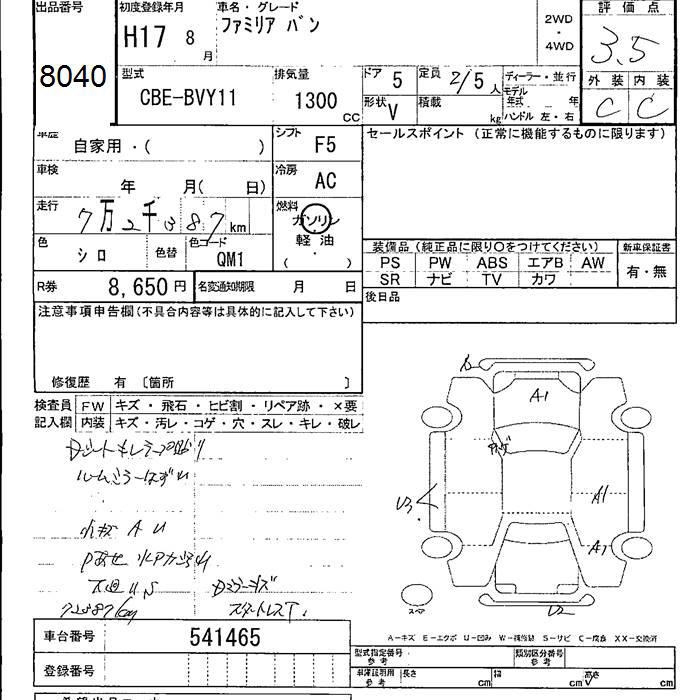 出品番号
8040
初度登録年月
H17 8 月
車名・グレード
ファミリア バン
2WD
・
4WD
評価点
3.5
型式
CBE-BVY11
排気量
1300 CC
ドア 5
定員 2/5 人
ディーラー・並行
モデル
年式 年
ハンドル 左・右
形状 V
積載 kg
外装 内装
C C
車歴 自家用・( )
シフト F5
セールスポイント (正常に機能するものに限ります)
車検 年 月( 日)
冷房 AC
走行 7万2千387km
燃料 ガソリン
軽油
・
( )
色 シロ
色替
色コード QM1
装備品 (純正品に限り○をつけてください)
新車保証書
PS PW ABS エアB AW
有・無
SR ナビ TV カワ
R券 8,650円
名変通知期限 月 日
後日品
注意事項申告欄(不具合内容等は具体的に記入して下さい)
修復歴 有 〔箇所 〕
検査員 FW キズ・飛石・ヒビ割・リペア跡・×要
記入欄 内装 キズ・汚レ・コゲ・穴・スレ・キレ・破レ
ルームミラーはずれ
A U
72387km
スタートレスT.
A1
A1
A1
U3
U2
スペア
A-キズ E-エクボ U-凹み W-補修跡 S-サビ C-腐食 XX-交換済
車台番号 541465
登録番号
型式指定番号
参考
類別区分番号
参考
車庫証明用
参考
長さ cm
幅 cm
高さ cm